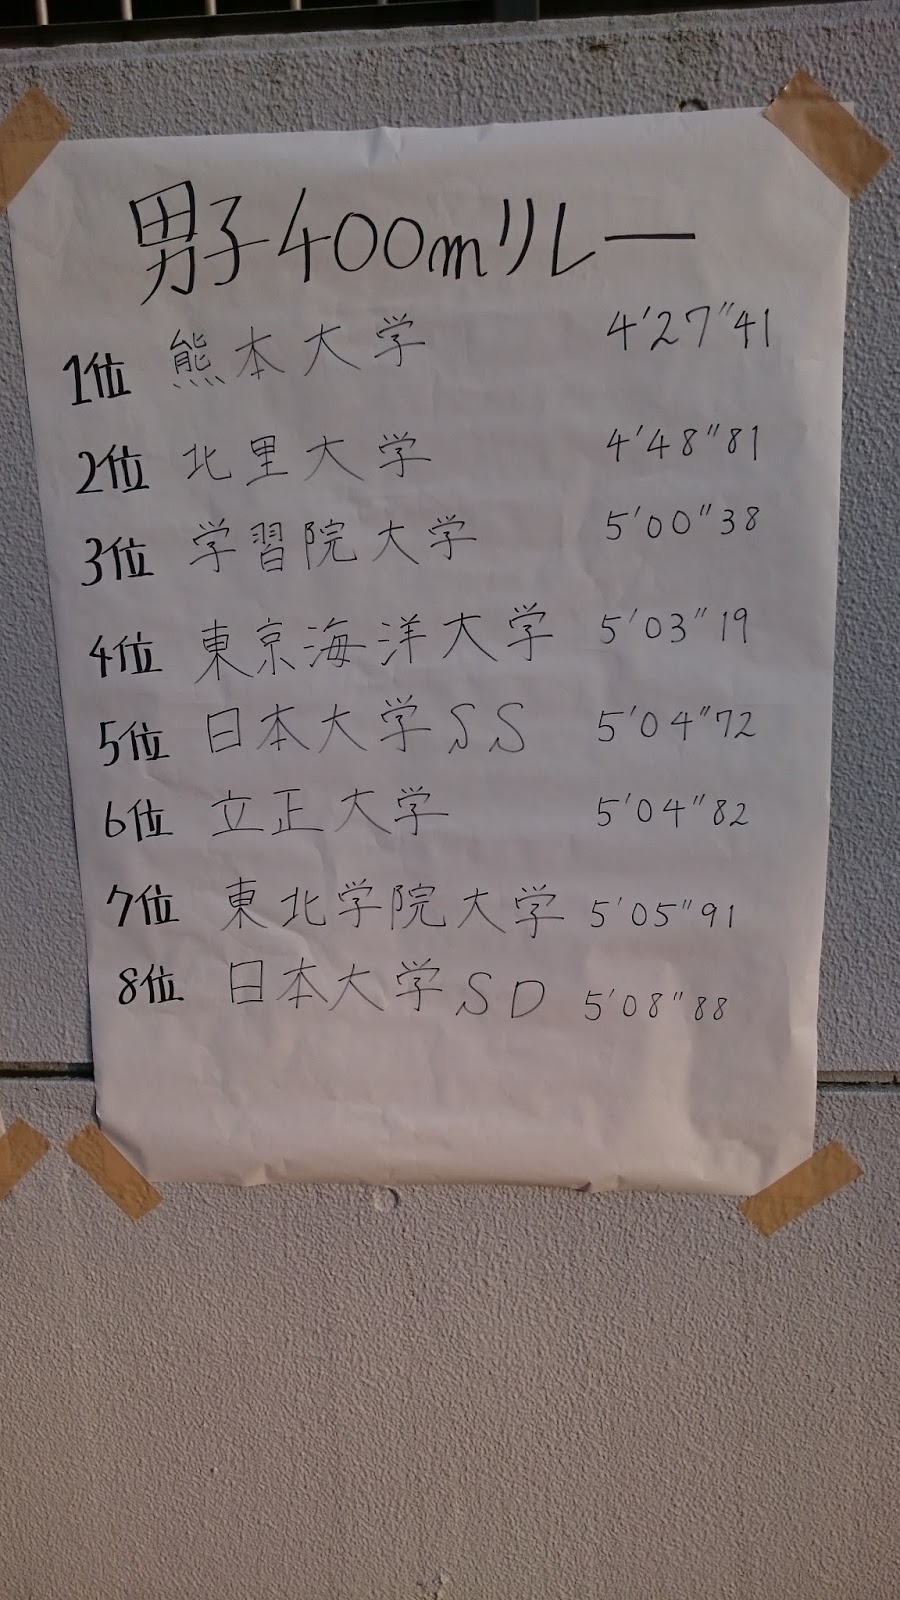 男子400mリレー
1位 熊本大学 4'27"41
2位 北里大学 4'48"81
3位 学習院大学 5'00"38
4位 東京海洋大学 5'03"19
5位 日本大学SS 5'04"72
6位 立正大学 5'04"82
7位 東北学院大学 5'05"91
8位 日本大学SD 5'08"88